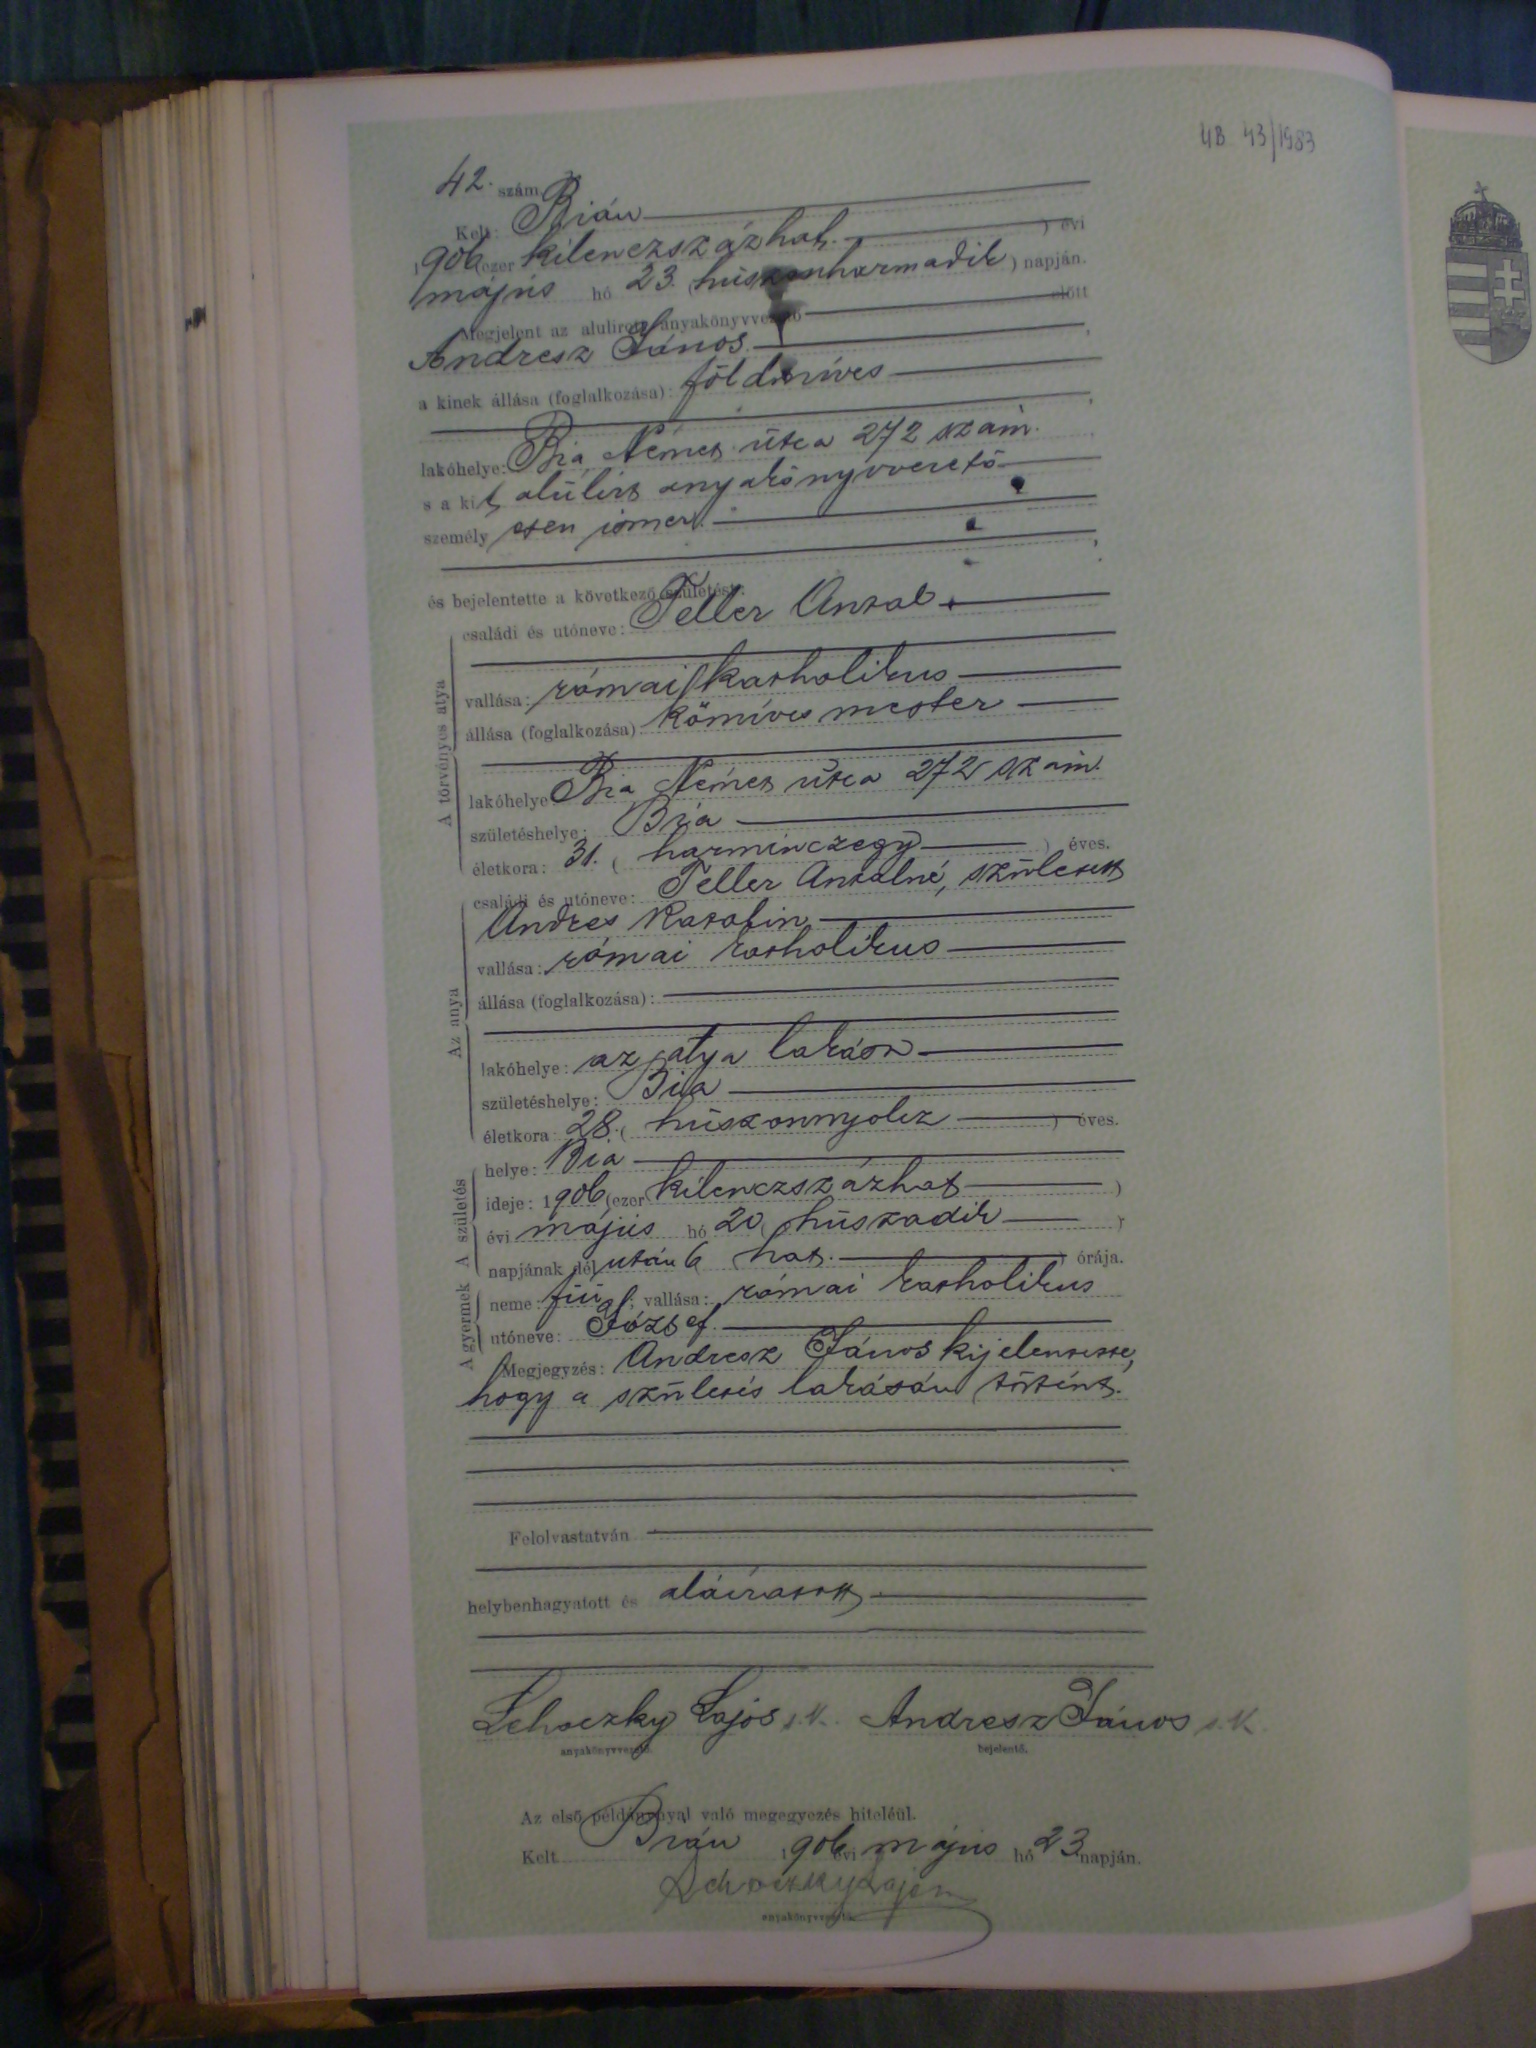 UB 43/1983
42. szám
Kelt: Bián
1906 (ezer kilenczszázhat. ) évi
május hó 23. (huszonharmadik) napján.
Megjelent az alulirott anyakönyvvezető előtt
Andresz János
a kinek állása (foglalkozása): földmíves
lakóhelye: Bia Német útca 272 szám.
s a kit alúlirt anyakönyvvezető
személyesen ismer.
és bejelentette a következő születést:
A törvényes atya
családi és utóneve: Teller Antal
vallása: római katholikus
állása (foglalkozása): kőmíves mester
lakóhelye Bia Német útca 272 szám.
születéshelye: Bia
életkora: 31. (harminczegy) éves.
Az anya
családi és utóneve: Teller Antalné, született
Andres Katalin
vallása: római katholikus
állása (foglalkozása):
lakóhelye: az atya lakása
születéshelye: Bia
életkora: 28. (húszonnyolcz) éves.
A születés
helye: Bia
ideje: 1906 (ezer kilenczszázhat)
évi május hó 20 (húszadik)
napjának délután 6 hat. órája.
A gyermek
neme: fiú; vallása: római katholikus
utóneve: József
Megjegyzés: Andresz János kijelentette,
hogy a születés lakásán történt.
Felolvastatván
helybenhagyatott és aláíratott
Lehoczky Lajos s.k. Andresz János s.k.
anyakönyvvezető. bejelentő.
Az első példánnyal való megegyezés hiteléül.
Kelt Bián 1906 évi május hó 23 napján.
Lehoczky Lajos
anyakönyvvezető.